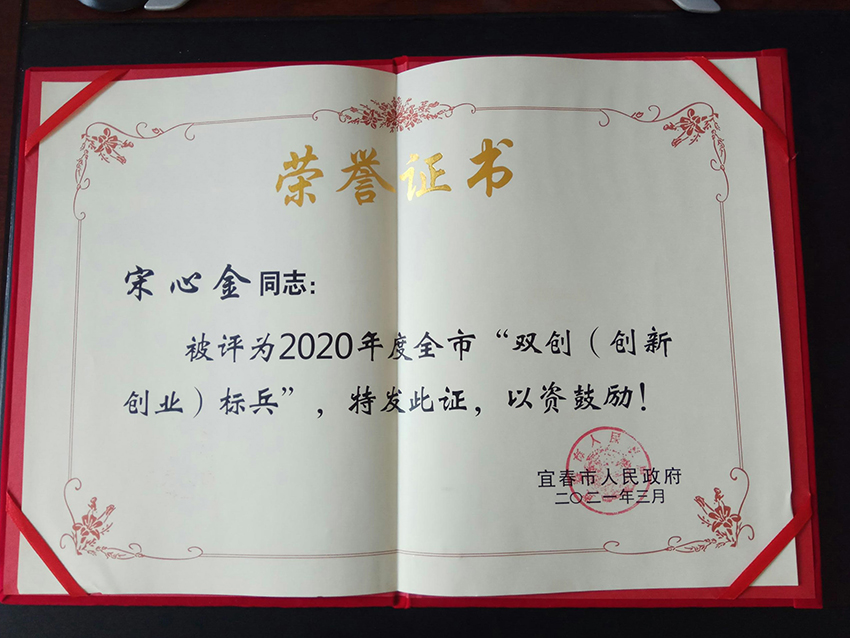 荣誉证书
宋心金同志：
被评为2020年度全市“双创（创新
创业）标兵”，特发此证，以资鼓励！
宜春市人民政府
二〇二一年三月